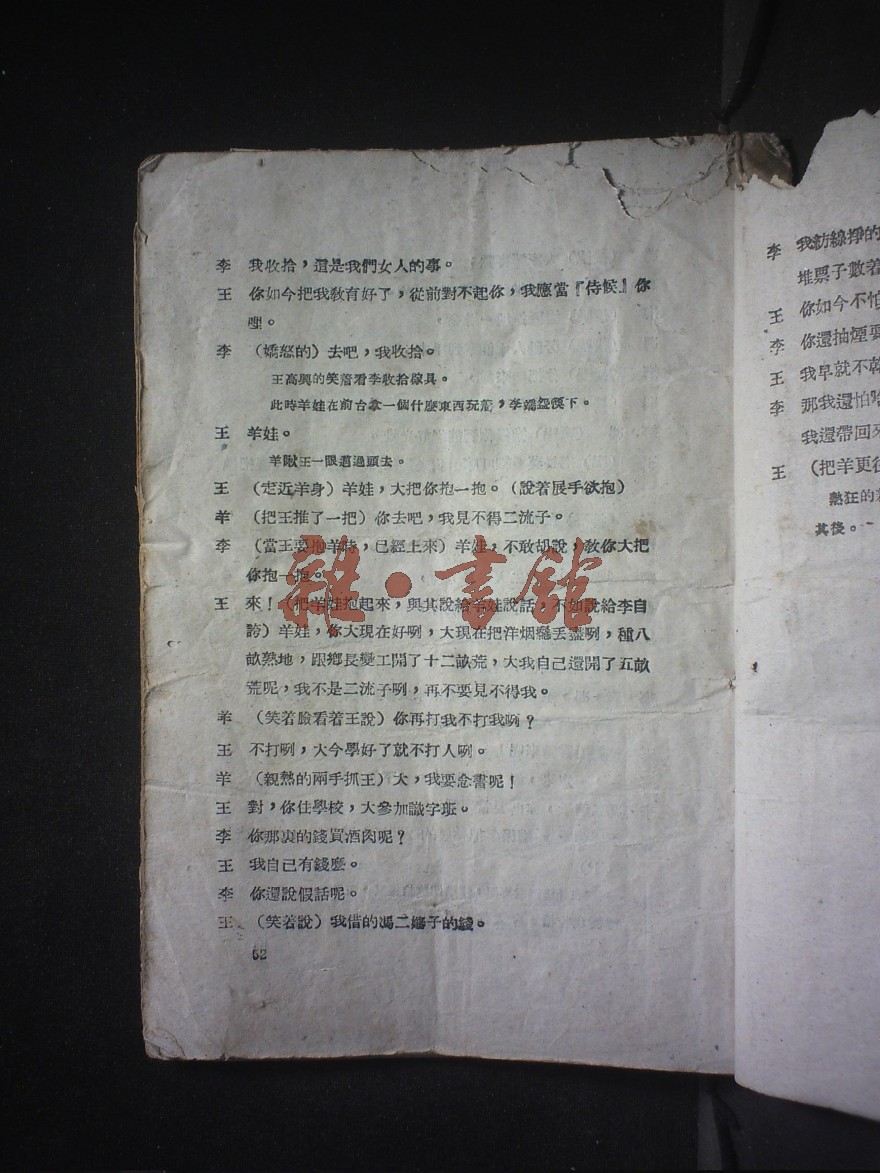 李 我收拾，這是我們女人的事。
王 你如今把我敎育好了，從前對不起你，我應當『侍候』你
哩。
李 （嬌怒的）去吧，我收拾。
王高興的笑着看李收拾傢具。
此時羊娃在前台拿一個什麼東西玩着，李端盌復下。
王 羊娃。
羊瞅王一眼趔過頭去。
王 （走近羊身）羊娃，大把你抱一抱。（說着展手欲抱）
羊 （把王推了一把）你去吧，我見不得二流子。
李 （當王要抱羊時，已經上來）羊娃，不敢胡說，敎你大把
你抱一抱。
王 來！（把羊娃抱起來，與其說給羊娃說話，不如說給李自
誇）羊娃，你大現在好咧，大現在把洋烟癮丟盡咧，種八
畝熟地，跟鄉長變工開了十二畝荒，大我自己還開了五畝
荒呢，我不是二流子咧，再不要見不得我。
羊 （笑着臉看着王說）你再打我不打我咧？
王 不打咧，大今學好了就不打人咧。
羊 （親熱的兩手抓王）大，我要念書呢！
王 對，你住學校，大參加識字班。
李 你那裏的錢買酒肉呢？
王 我自己有錢麽。
李 你還說假話呢。
王 （笑着說）我借的馮二嬸子的錢。
52
李 我紡線掙的
堆票子數着
王 你如今不怕
李 你還抽煙耍
王 我早就不幹
李 那我還怕啥
我還帶回來
王 （把羊更往
熱狂的
其後。
雜·書館